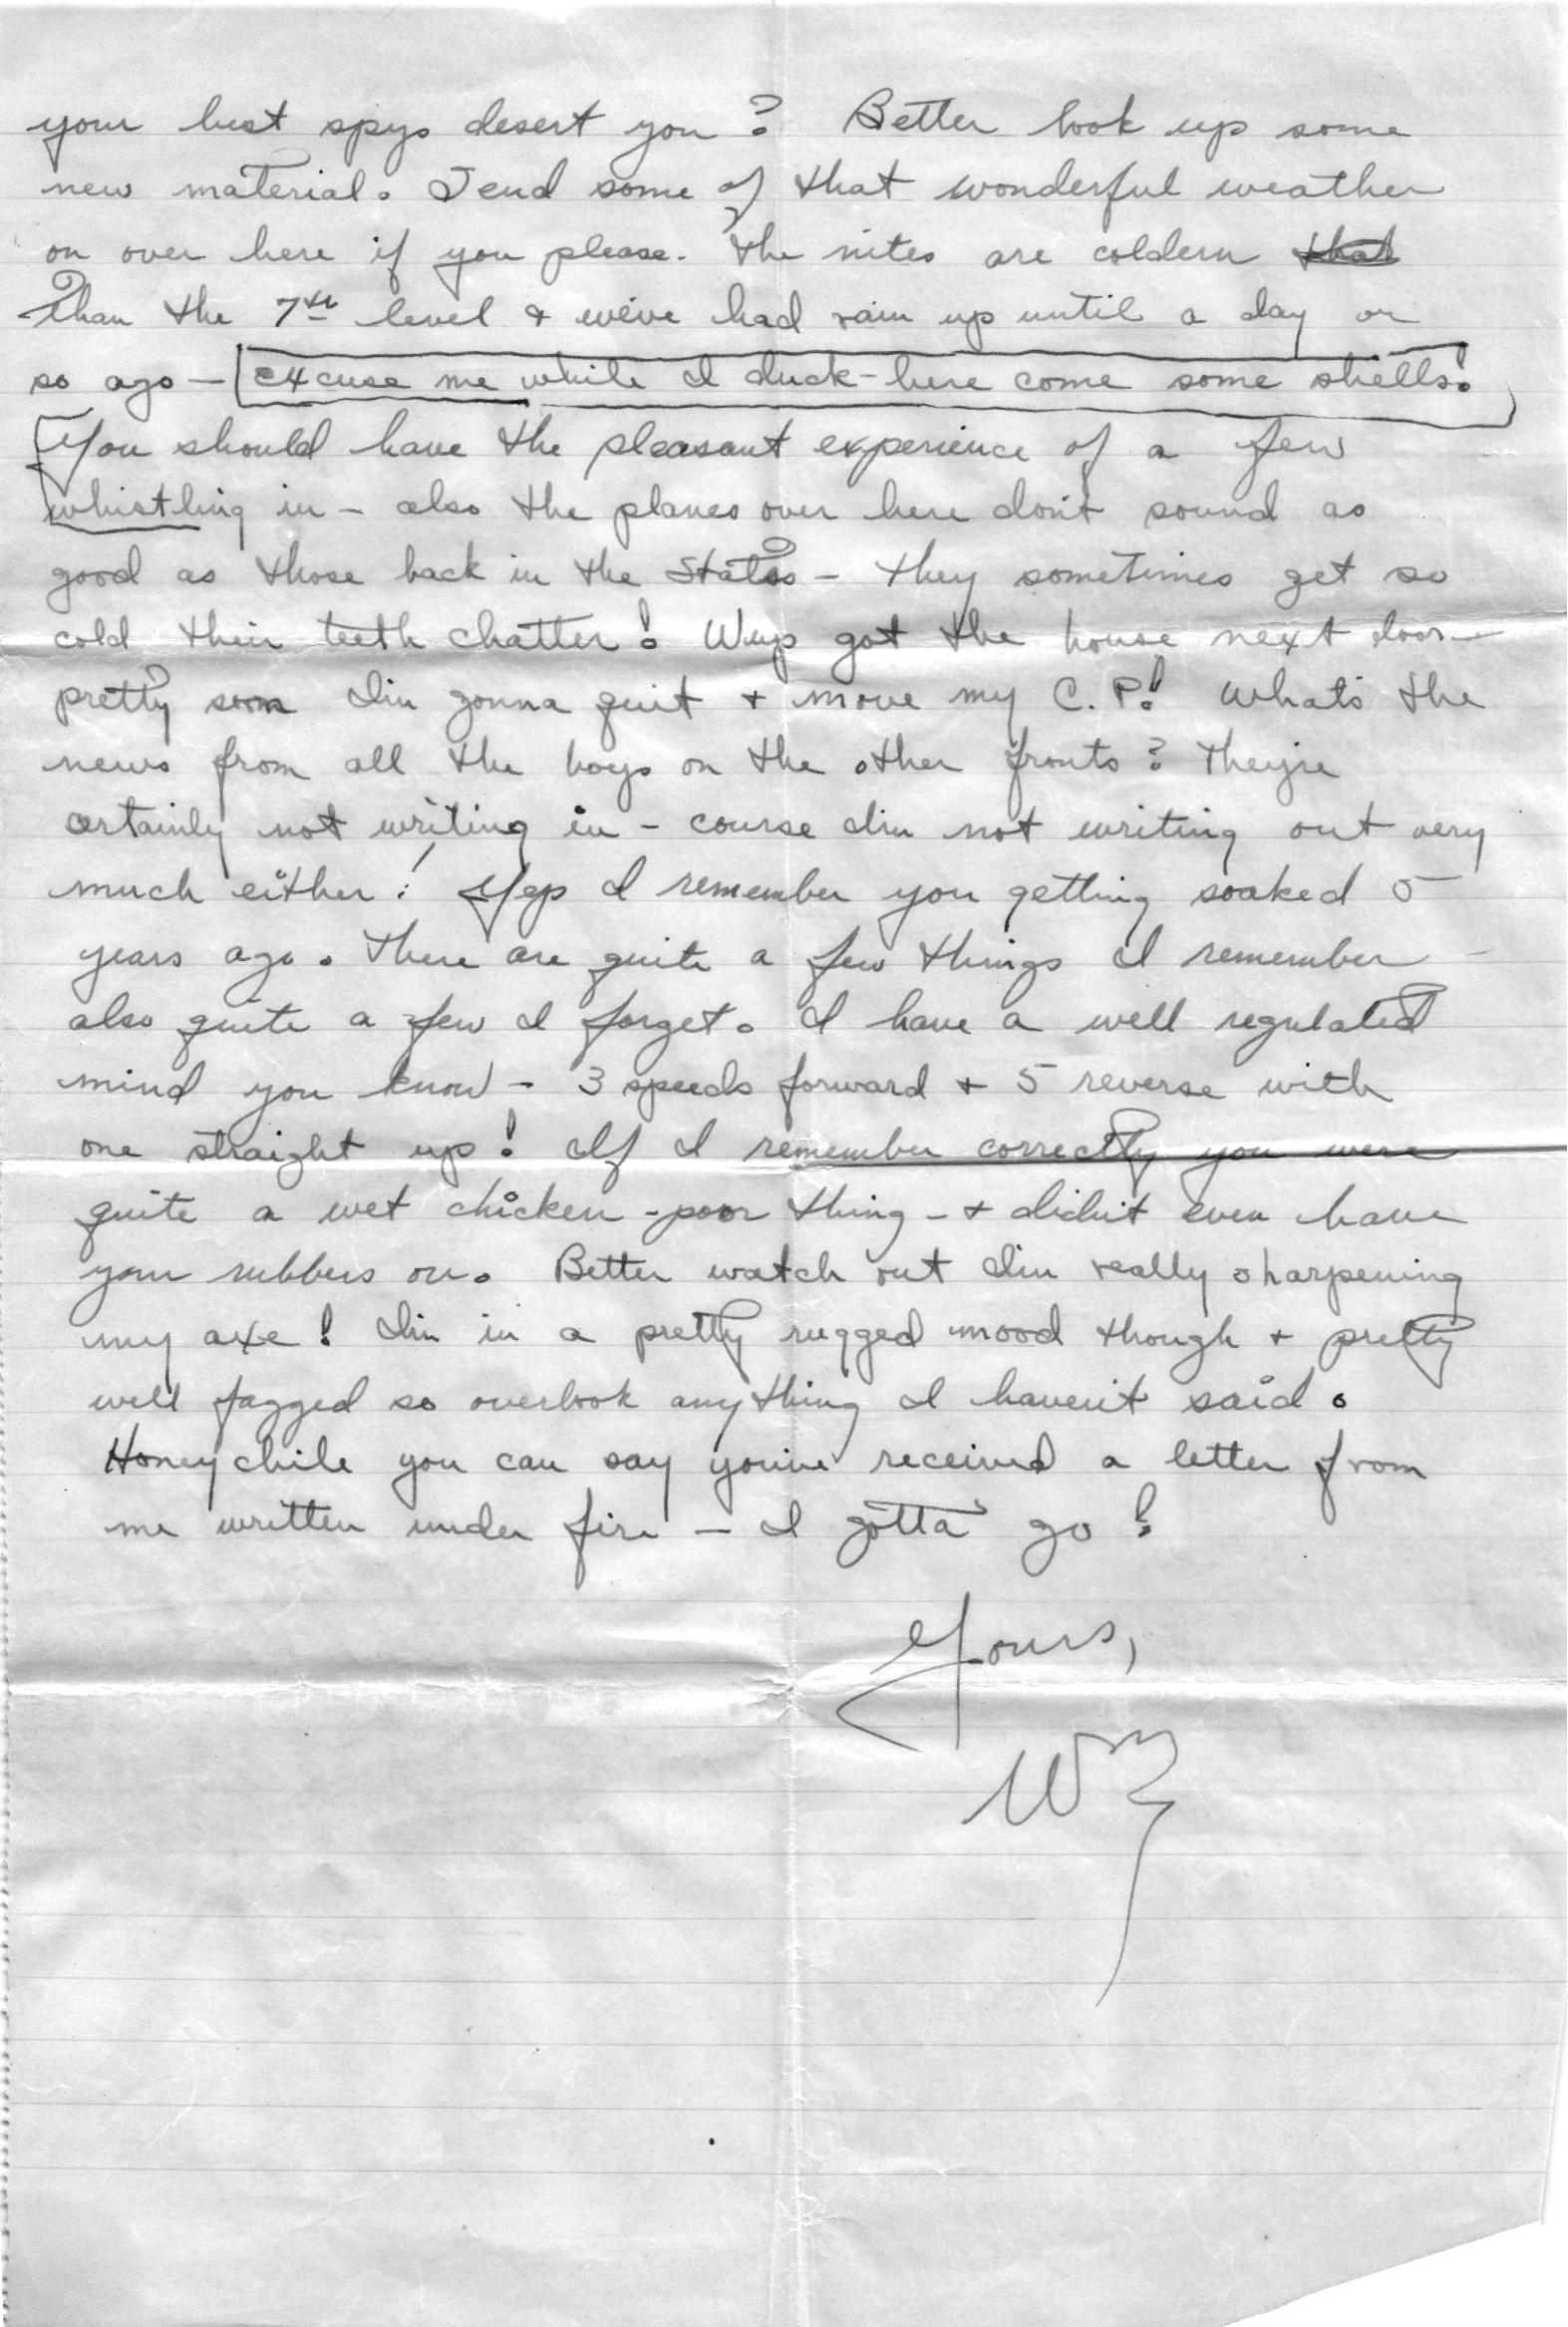 your best spys desert you? Better look up some
new material. Send some of that wonderful weather
on over here if you please. The nites are coldern that
than the 7th level & we've had rain up until a day or
so ago — excuse me while I duck - here come some shells!
You should have the pleasant experience of a few
whistling in - also the planes over here don't sound as
good as those back in the States - they sometimes get so
cold their teeth chatter! Wups got the house next door —
pretty soon I'm gonna quit + move my C.P.! What's the
news from all the boys on the other fronts? They're
certainly not writing in - course I'm not writing out very
much either! Yep I remember you getting soaked 5
years ago. There are quite a few things I remember -
also quite a few I forget. I have a well regulated
mind you know - 3 speeds forward + 5 reverse with
one straight up! If I remember correctly you were
quite a wet chicken - poor thing - + didn't even have
your rubbers on. Better watch out I'm really sharpening
my axe! I'm in a pretty rugged mood though + pretty
well fagged so overlook anything I haven't said.
Honey chile you can say you've received a letter from
me written under fire — I gotta go!
Yours,